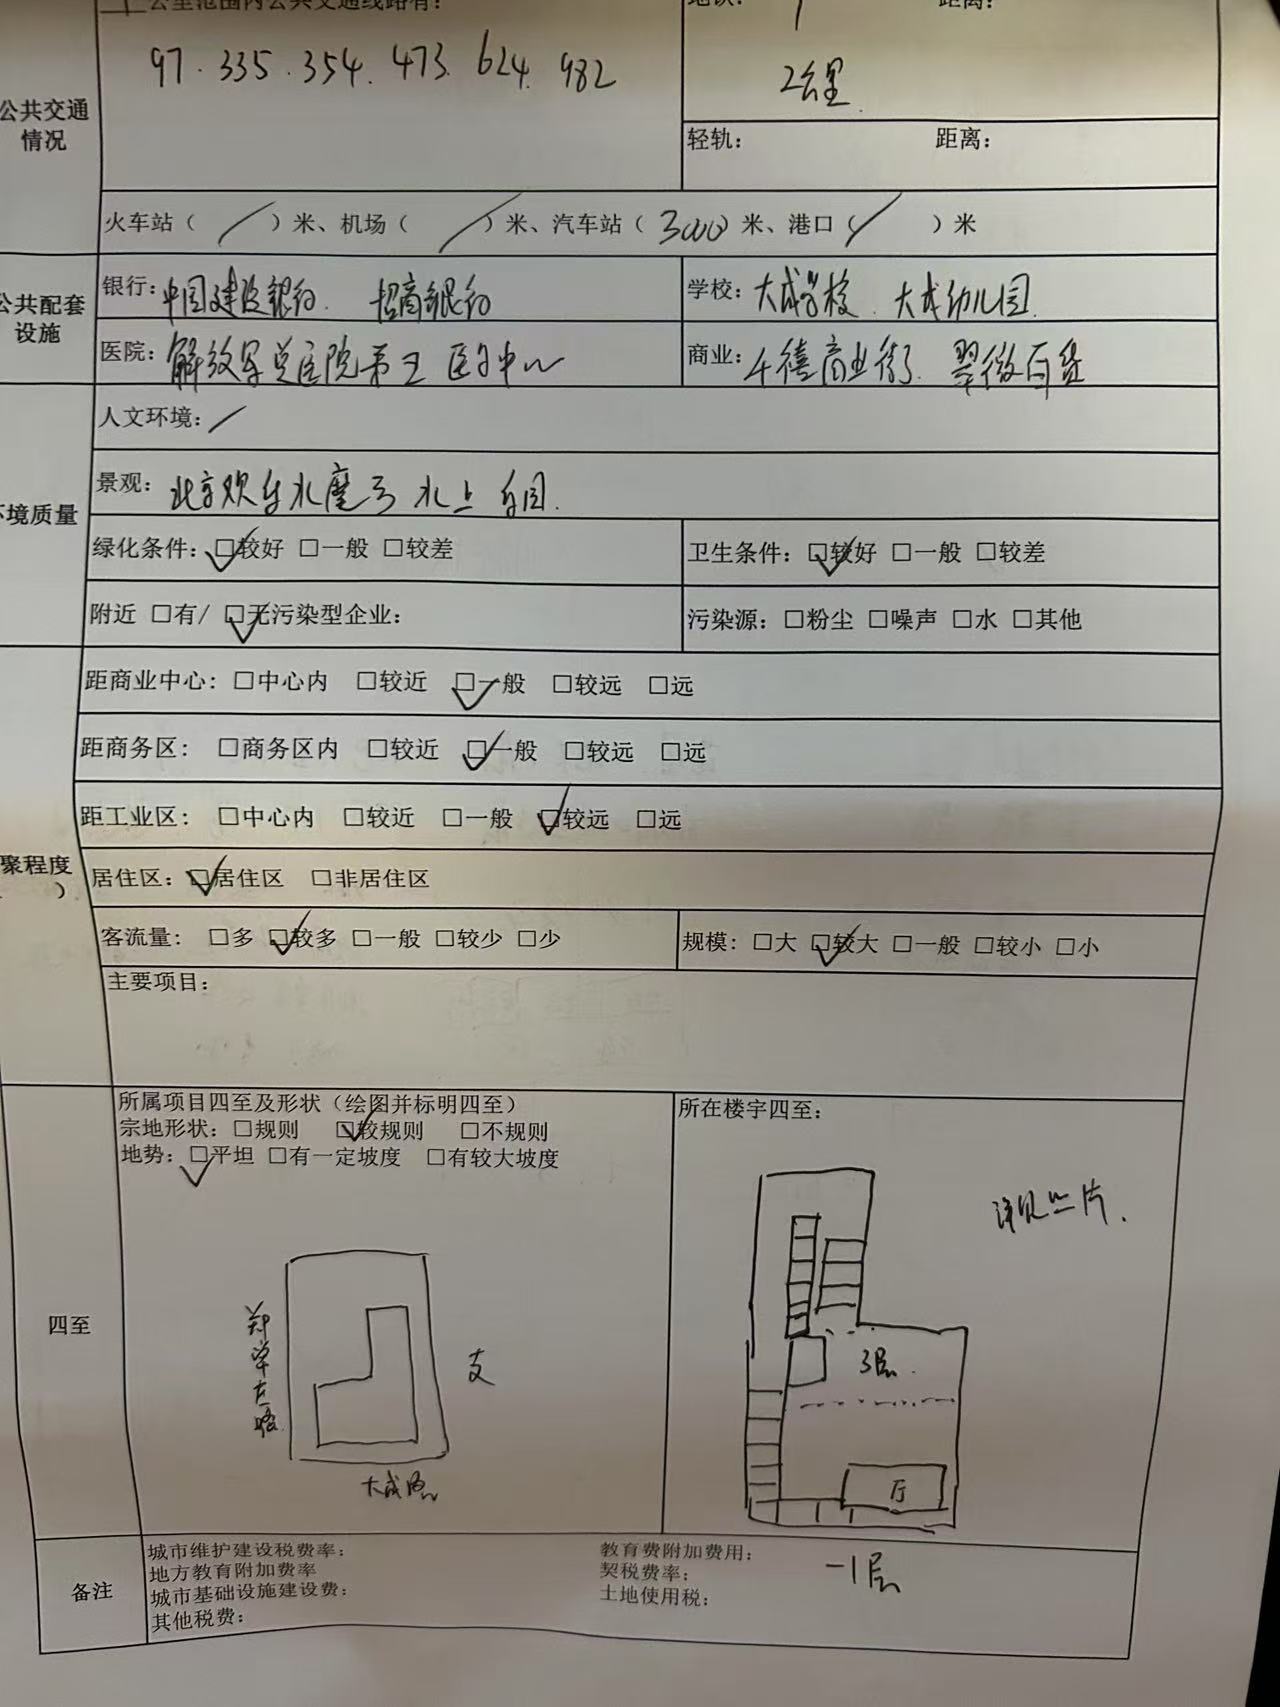 公里范围内公共交通线路有：
地铁： 1 距离：
97.335.354.473.624.982
2公里
公共交通
情况
轻轨： 距离：
火车站（ / ）米、机场（ / ）米、汽车站（3000）米、港口（/ ）米
公共配套
设施
银行：中国建设银行. 招商银行
学校：大成学校. 大成幼儿园.
医院：解放军总医院第三医学中心
商业：千禧商业街. 翠微百货
环境质量
人文环境：/
景观：北京欢乐水魔方水上乐园.
绿化条件：☑较好 □一般 □较差
卫生条件：☑较好 □一般 □较差
附近 □有/ ☑无污染型企业：
污染源：□粉尘 □噪声 □水 □其他
聚程度
）
距商业中心：□中心内 □较近 ☑一般 □较远 □远
距商务区：□商务区内 □较近 ☑一般 □较远 □远
距工业区：□中心内 □较近 □一般 ☑较远 □远
居住区：☑居住区 □非居住区
客流量：□多 ☑较多 □一般 □较少 □少
规模：□大 ☑较大 □一般 □较小 □小
主要项目：
四至
所属项目四至及形状（绘图并标明四至）
宗地形状：□规则 ☑较规则 □不规则
地势：☑平坦 □有一定坡度 □有较大坡度
郑常庄路
支
大成路
所在楼宇四至：
详见照片.
3层.
厅
-1层
备注
城市维护建设税费率：
教育费附加费用：
地方教育附加费率
契税费率：
城市基础设施建设费：
土地使用税：
其他税费：